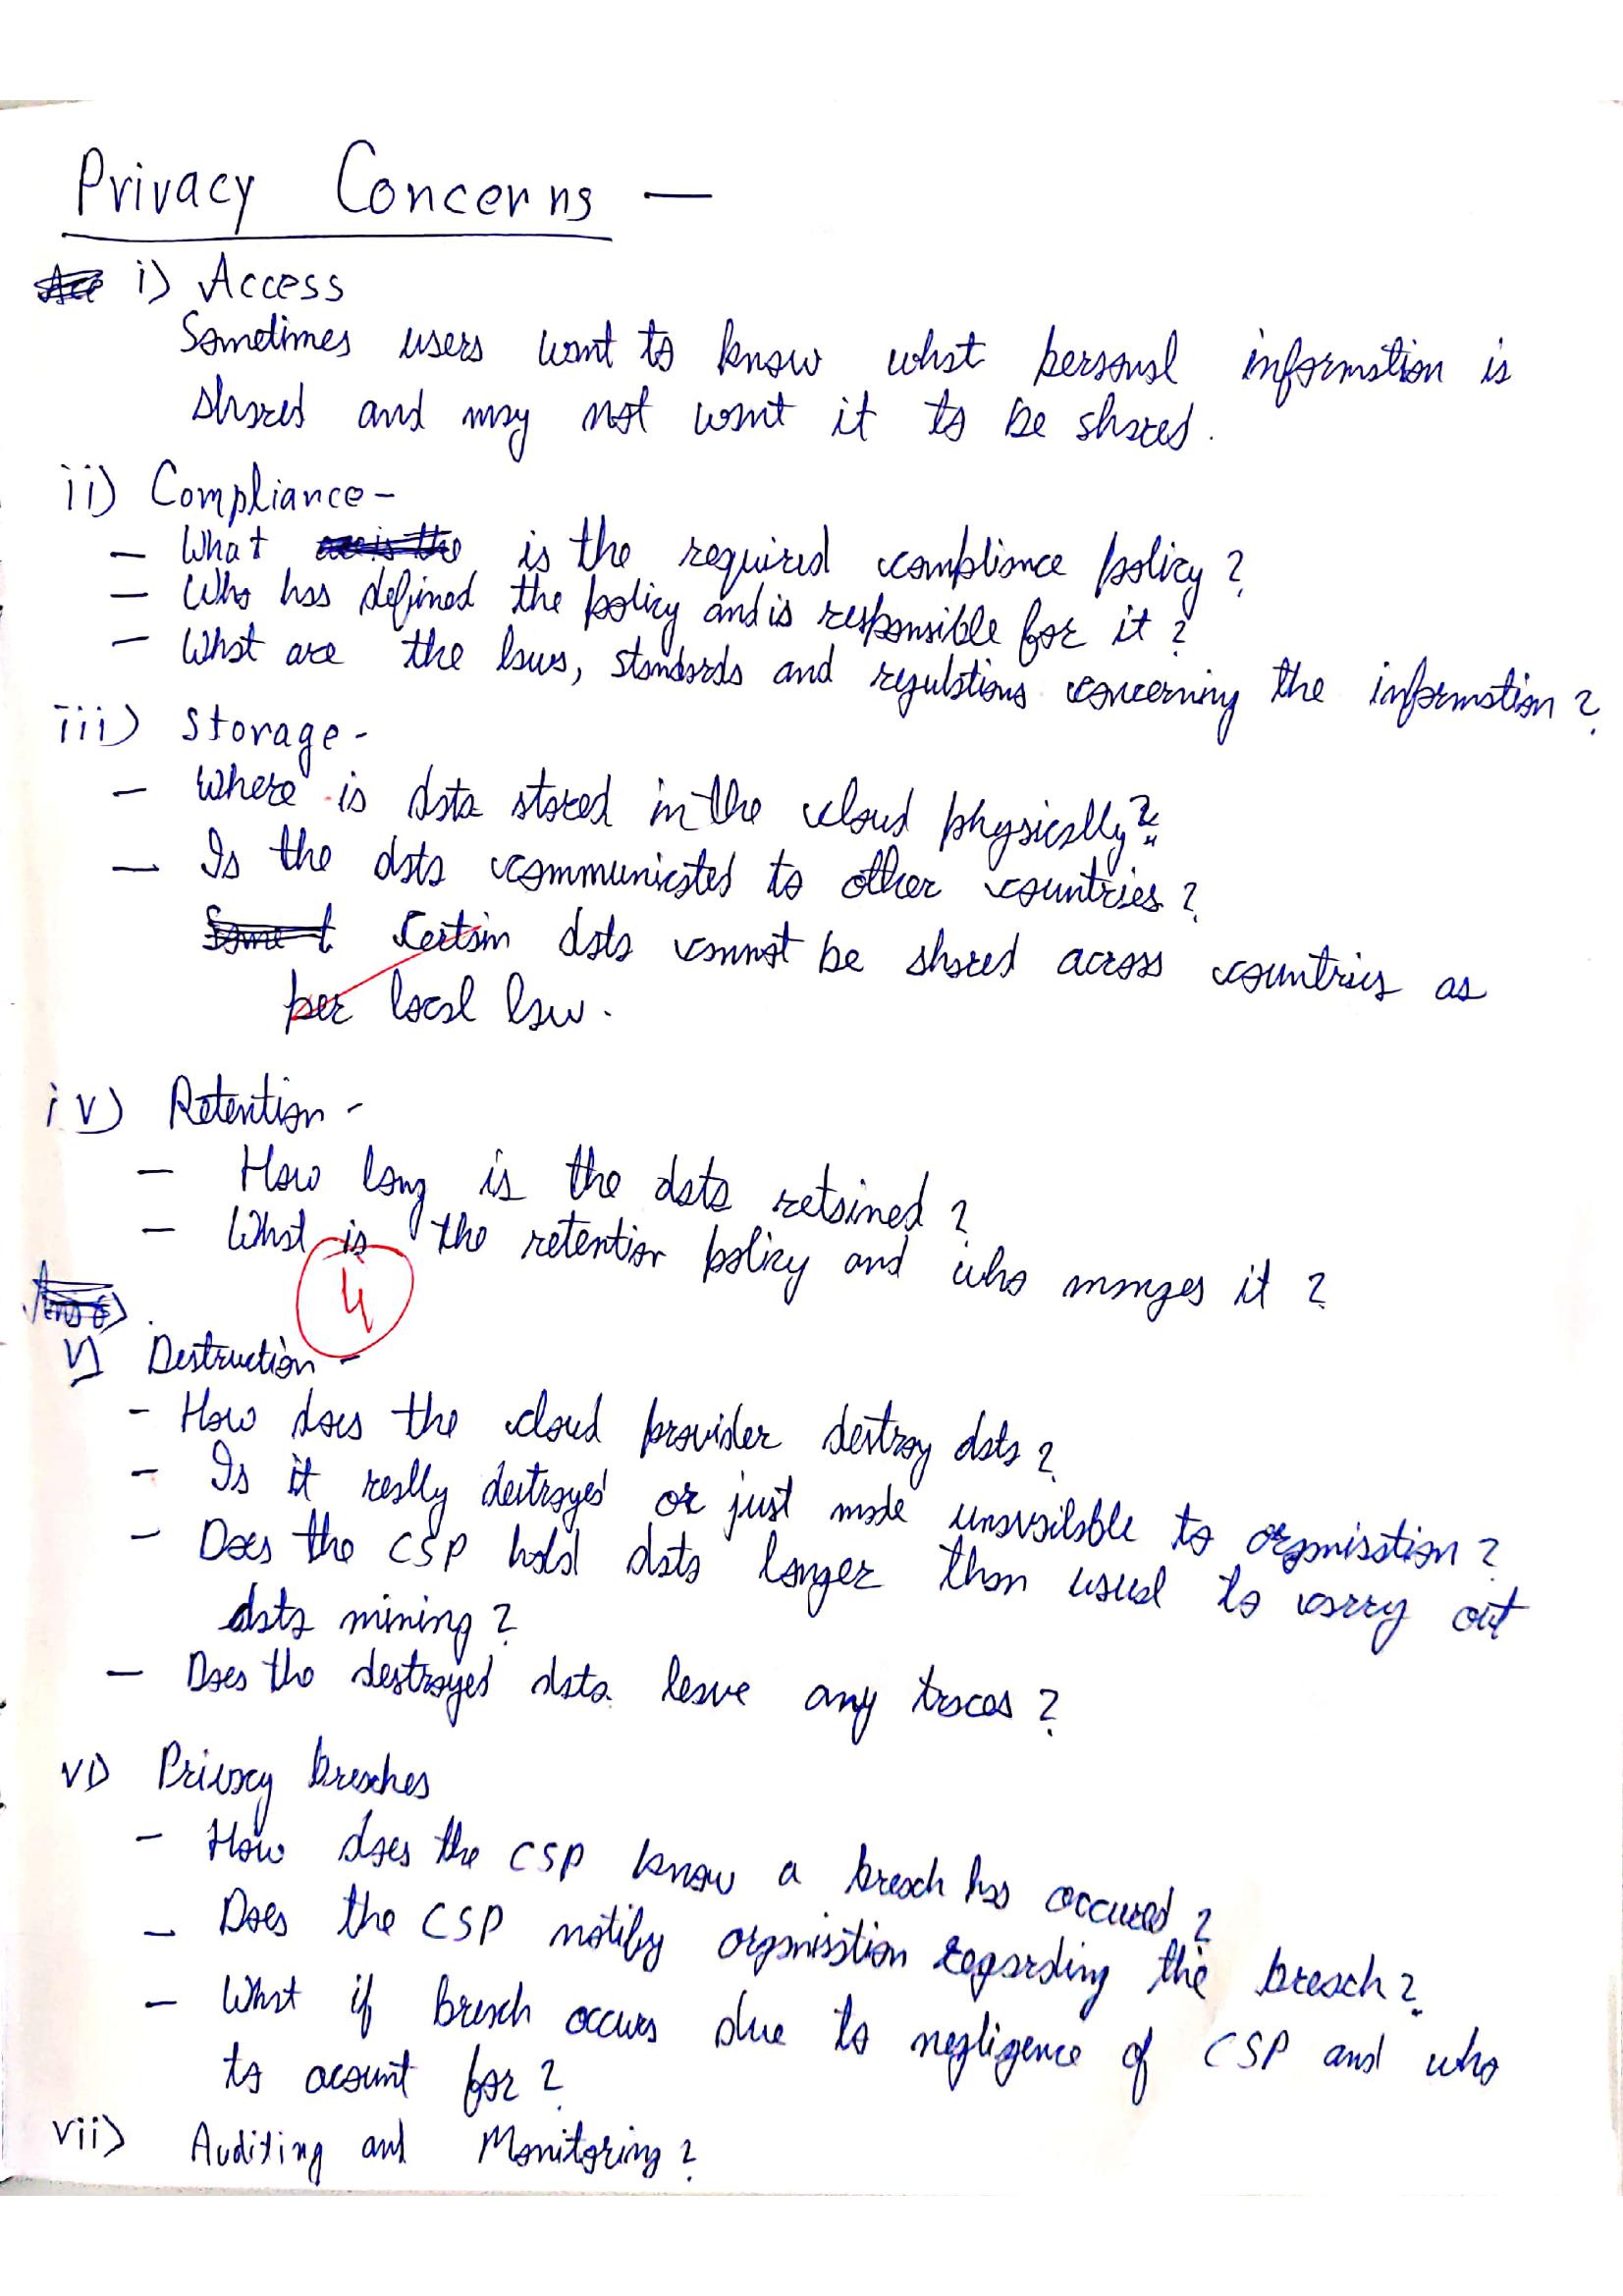 Privacy Concerns —
i) Access
Sometimes users want to know what personal information is
shared and may not want it to be shared.
ii) Compliance -
— What is the required compliance policy?
— Who has defined the policy and is responsible for it?
— What are the laws, standards and regulations concerning the information?
iii) Storage -
— Where is data stored in the cloud physically?
— Is the data communicated to other countries?
Certain data cannot be shared across countries as
per local law.
iv) Retention -
— How long is the data retained?
— What is the retention policy and who manges it?
4
v) Destruction -
- How does the cloud provider destroy data?
- Is it really destroyed or just made unavailable to organisation?
- Does the CSP hold data longer than usual to carry out
data mining?
— Does the destroyed data leave any traces?
vi) Privacy breaches
- How does the CSP know a breach has occured?
- Does the CSP notify organisation regarding the breach?
- What if breach occurs due to negligence of CSP and who
to acount for?
vii) Auditing and Monitoring?